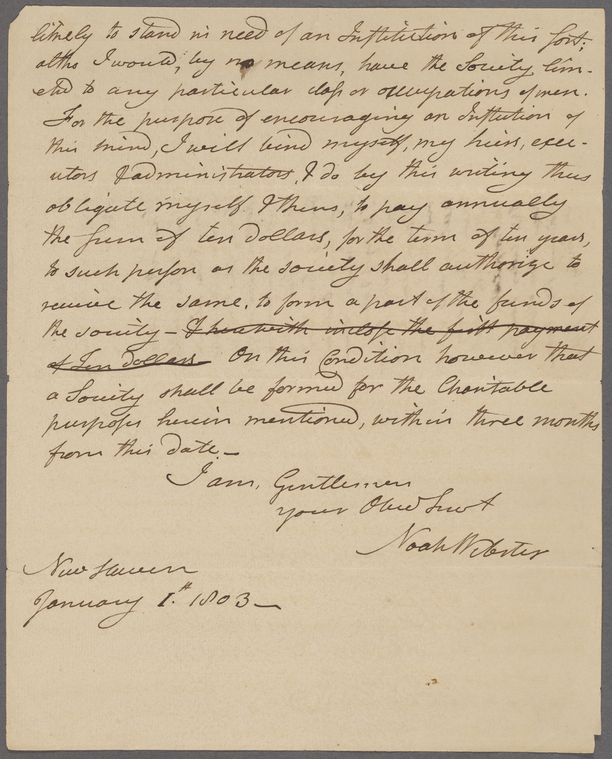 likely to stand in need of an Institution of this sort;
altho I would, by no means, have the Society lim-
-ited to any particular class or occupations of men.
For the purpose of encouraging an Institution of
this kind, I will bind myself, my heirs, exec-
utors & administrators, & do by this writing thus
obligate myself & them, to pay annually
the sum of ten dollars, for the term of ten years,
to such person as the society shall authorize to
receive the same, to form a part of the funds of
the society – I herewith inclose the first payment
of Ten dollars On this Condition however that
a Society shall be formed for the Charitable
purposes herein mentioned, within three months
from this date. –
I am, Gentlemen
your Obed Servt
Noah Webster
New Haven
January 1.st 1803 –